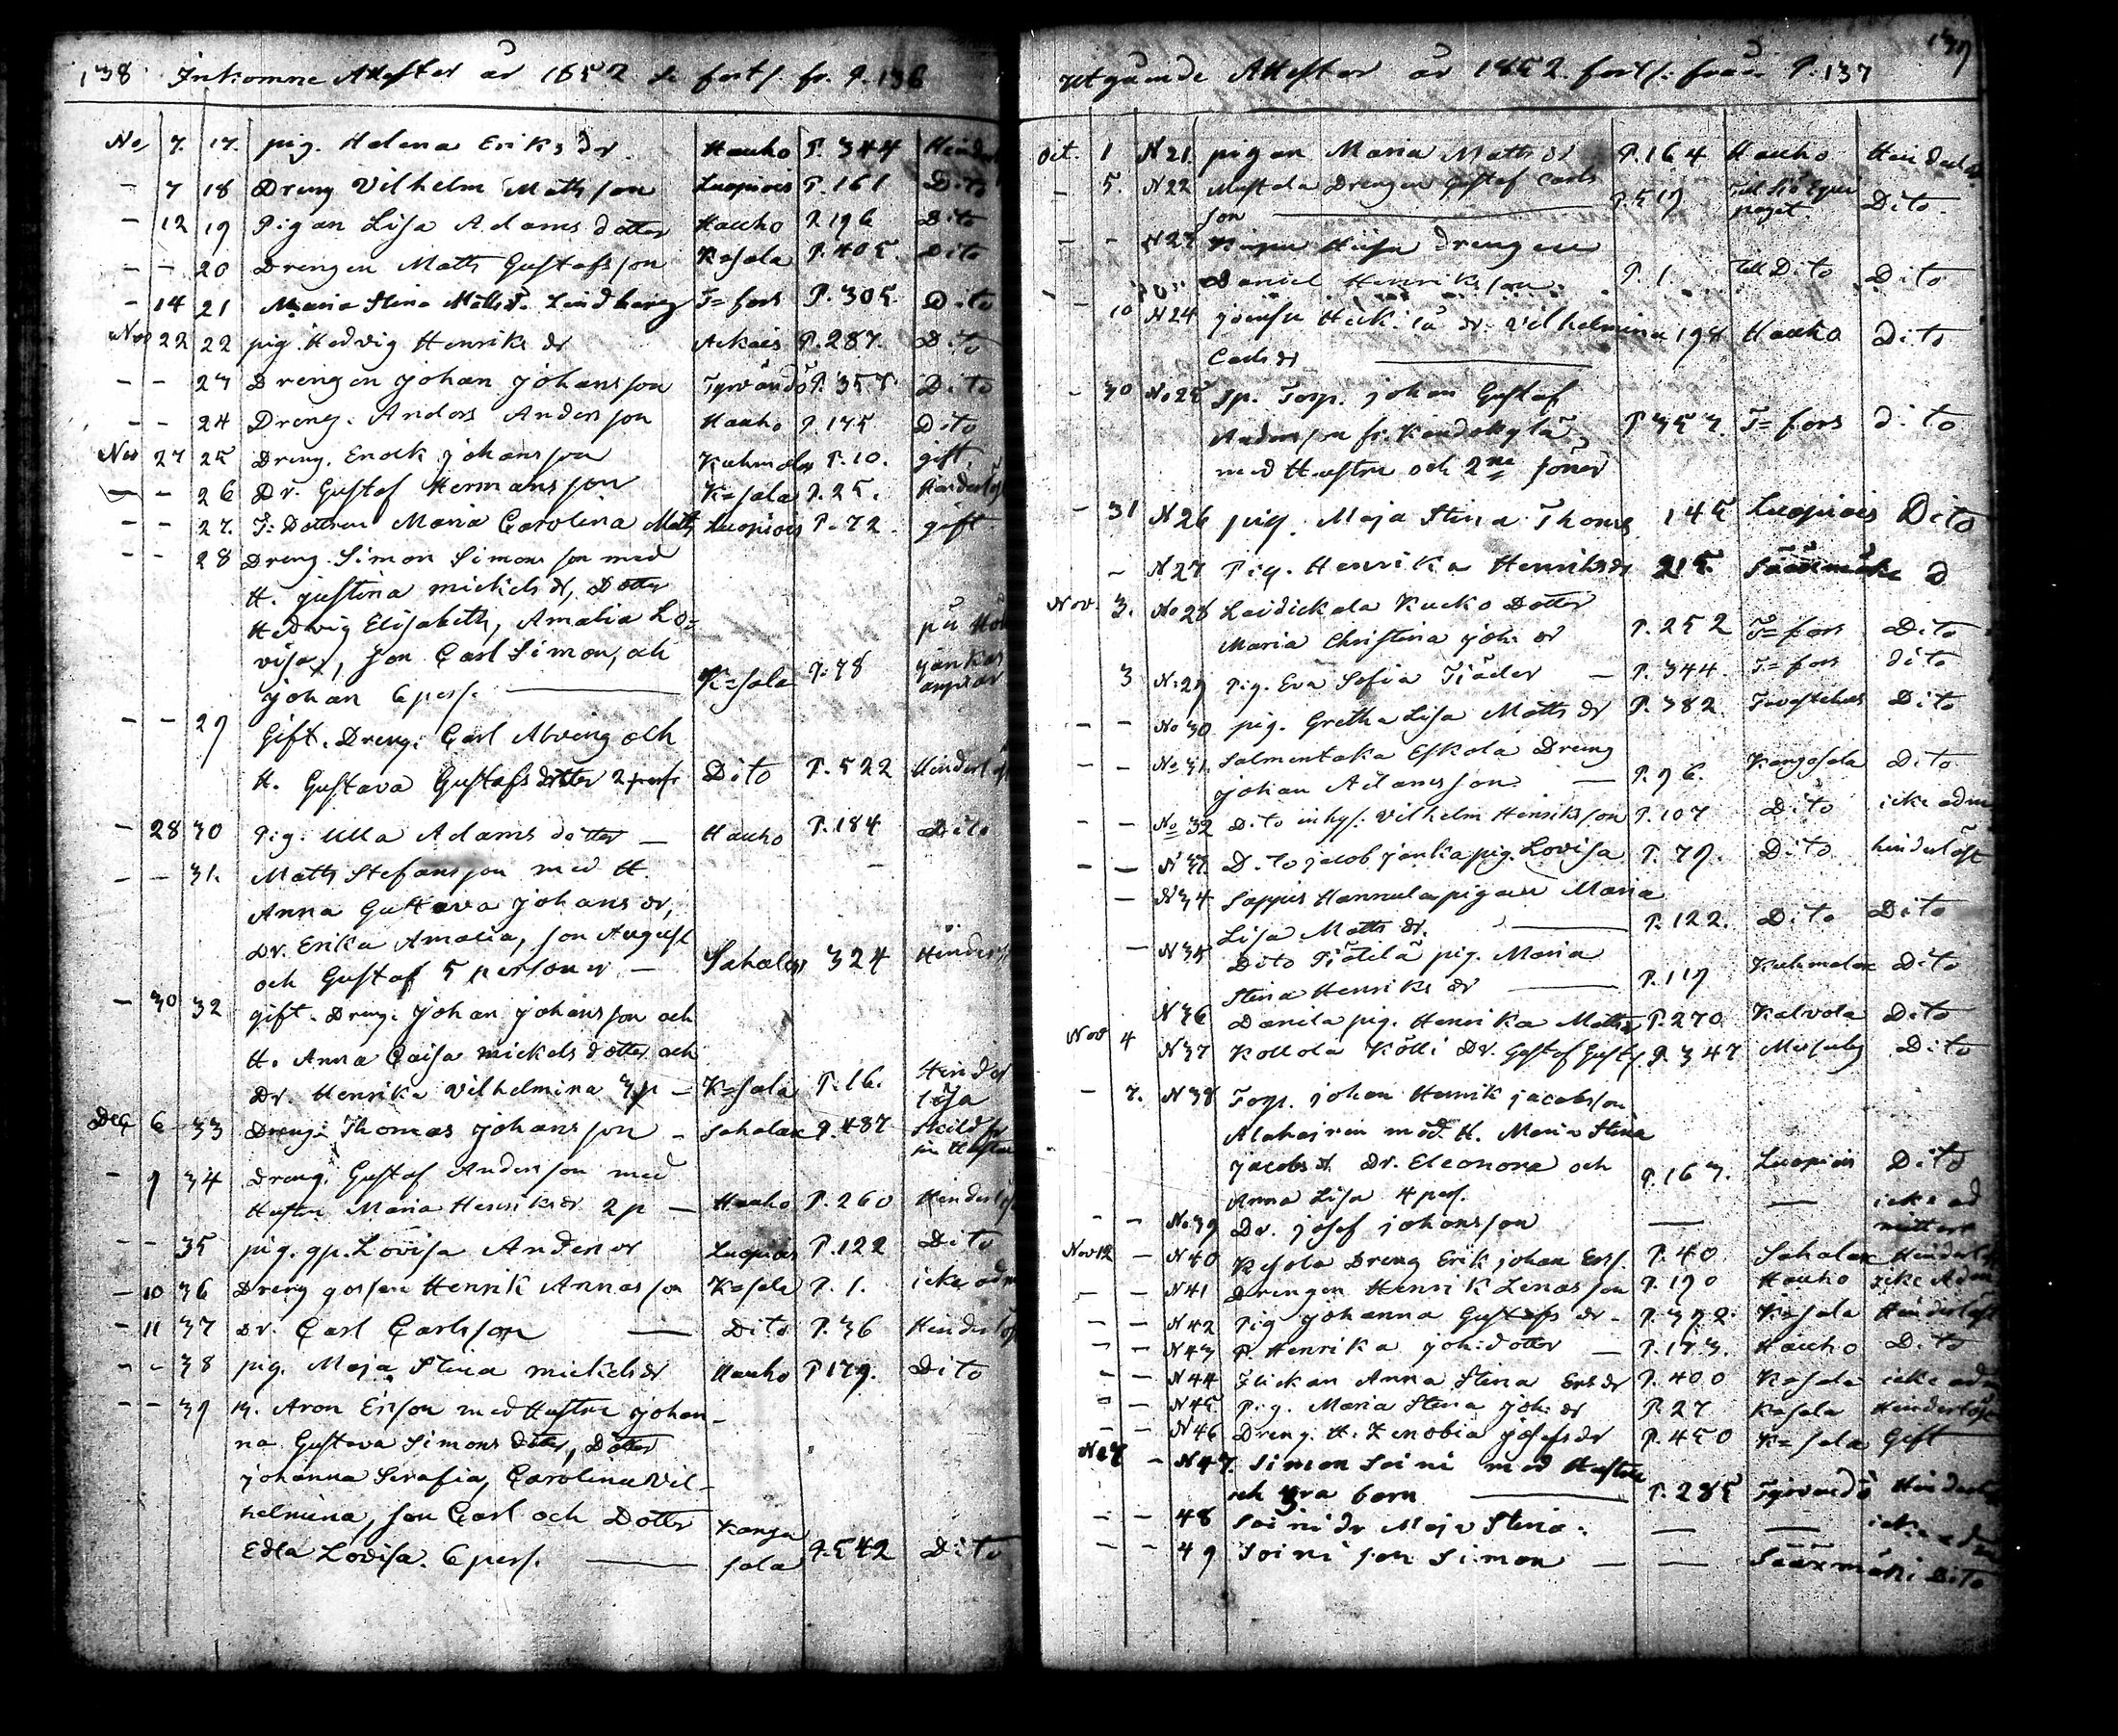 138 Inkomne Attester år 1852 forts. fr. P. 136
No 7. 17. pig. Helena Eriks dr. Hauho P. 344 Hinderl
- 7 18 Dreng Vilhelm Matts son Luopiois P. 161 Dito
- 12 19 Pigan Lisa Adams dotter Hauho P. 196 Dito
- - 20 Drengen Matts Gustafsson K=sala P. 405. Dito
- 14 21 Maria Stina Mattsd. Lindberg T=fors P. 305. Dito
Nov 22 22 pig. Hedvig Henriks dr Ackais P. 287. Dito
- - 23 Drengen Johan Johansson Tyrvändö P. 357 Dito
- - 24 Dreng. Anders Andersson Hauho P. 135 Dito
Nov 27 25 Dreng. Enock Johansson Kuhmalax P. 10. gift.
- - 26 Dr. Gustaf Hermansson K=sala P. 25. Hinderlös
- - 27. T: Dottren Maria Carolina Matts Luopiois P. 72. gift
- - 28 Dreng. Simon Simonsson med
H. Justina mickels dr, Dotter
Hedvig Elisabeth, Amalia Lo=
visa, son Carl Simon, och
Johan 6 pers. K=sala P. 78
- - 29 Gift. Dreng. Carl Alving och
H. Gustava Gustafs dotter 2 pers Dito P. 522 Hinderlös
- 28 30 Pig. Ulla Adams dotter - Hauho P. 184 Dito
- - 31. Matts Stefansson med H.
Anna Gustava Johans dr,
Dr. Erika Amalia, son August
och Gustaf 5 personer - Sahalax 324 Hinders
- 30 32 gift. Dreng. Johan Johansson och
H. Anna Caisa mickels dotter och
Dr. Henrika Vilhelmina 3 p - K=sala P. 16. Hinder
lösa
Dec 6 33 Dreng. Thomas Johansson - Sahalax P. 487 Skild fr
sin Hustru
- 9 34 Dreng. Gustaf Andersson med
Hustru Maria Henriks dr 2 p - Hauho P. 260 Hinderlös
- - 35 pig. gp. Lovisa Anders dr Luopiois P. 122 Dito
- 10 36 Dreng gossen Henrik Annasson K=sala P. 1. icke adm
- 11 37 Dr. Carl Carlsson Dito P. 36 Hinderlös
- - 38 pig. Maja Stina mickels dr Hauho P. 179. Dito
- - 39 Aron Ersson med Hustru Johan-
na Gustava Simons dotter, Dotter
Johanna Serafia, Carolina Vil-
helmina, son Carl och Dotter
Edla Lovisa. 6 pers. Kanga
sala P. 542 Dito
139
Utgående Attester år 1852. forts: från P. 137
Oct. 1 N 21. pigan Maria Matts dr P. 164 Hauho Hinderlös
- 5. N 22 Mustala Drengen Gustaf Carls
son P. 519 Till Sjö Equi
paget. Dito.
- - N 23 Drengen
Daniel Henriksson P. 1. till Dito Dito
- 10 N 24 dr. Vilhelmina
Carls dr 194 Hauho Dito
- 30 No 25 Sp. Torp. Johan Gustaf
Andersson fr. Kandokylä,
med Hustru och 2ne söner P 353. T=fors dito
- 31 N 26 pig. Maja Stina Thoms 145 Luopiois Dito
- N 27 Pig. Henrika Henriks dr 215. Sääxmäki d
Nov. 3. No 28 Laidickala Kucko Dotter
Maria Christina Joh. dr P. 252 T=fors Dito
3 No 29 Pig. Eva Sofia Tiäder - P. 344. T=fors dito
- - No 30 pig. Gretha Lisa Matts dr P. 382. Tavastehus Dito
- - No 31. Salmentaka Eskola Dreng
Johan Adamsson - P. 96. Kangasala Dito
- - No 32 Dito inhys. Vilhelm Henriksson P. 107 Dito icke adm
- - N 33. Dito Jacob Jankas pig. Lovisa P. 79. Dito hinderlöst
- N 34 Sappis Hannula pigan Maria
Lisa Matts dr. P. 122. Dito Dito
- N 35 Dito Piätilä pig. Maria
Stina Henriks dr P. 119 Kuhmalax Dito
N 36 Danila pig. Henrika Matts P. 270 Kalvola Dito
Nov 4 N 37 Kollola Kölli Dr. Gustaf Gusts. P. 347 Messuby Dito
- 7. N 38 Torp. Johan Henrik Jacobsson
Alahairin med H. Maria Stina
Jacobs dr. Dr. Eleonora och
Anna Lisa 4 pers. P. 163. Luopiois Dito
- - No 39 Dr. Josef Johansson — — icke ad
mittera
Nov 12 - N 40 Kesola Dreng Erik Johan Ers. P. 40. Sahalax Hinderlös
- - N 41 Drengen Henrik Lenasson P. 190 Hauho icke Adm
- - N 42 Pig Johanna Gustafs dr - P. 392. K=sala Hinderlöst
- - N 43 P. Henrika Joh: dotter - P. 173. Hauho Dito
- - N 44 Flickan Anna Stina Ers dr P. 400 K=sala icke adm
- - N 45 Pig. Maria Stina Joh. dr P. 27 K=sala Hinderlös
- - N 46 Dreng. H. Zenobia Josefs dr P. 450 K=sala Gift
- N 47. Simon Soini med Hustru
och 3ra barn P. 285 Tyrvändö Hinderlös
- - 48 Soini dr Maja Stina. — — icke adm
- - 49 Soini son Simon — — Sääxmäki Dito